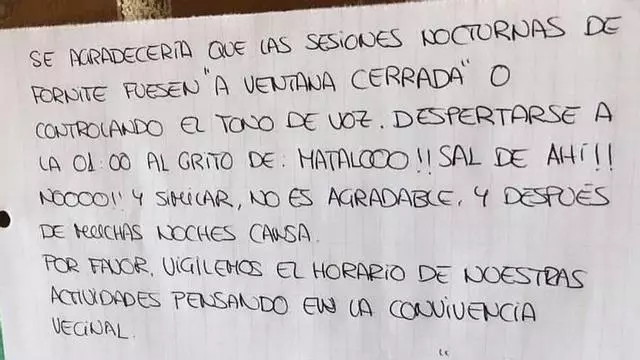 SE AGRADECERÍA QUE LAS SESIONES NOCTURNAS DE
FORNITE FUESEN "A VENTANA CERRADA" O
CONTROLANDO EL TONO DE VOZ. DESPERTARSE A
LA 01:00 AL GRITO DE: MATALOOO!! SAL DE AHÍ!!
NOOOO!! Y SIMILAR, NO ES AGRADABLE, Y DESPUÉS
DE MUCHAS NOCHES CANSA.
POR FAVOR, VIGILEMOS EL HORARIO DE NUESTRAS
ACTIVIDADES PENSANDO EN LA CONVIVENCIA
VECINAL.